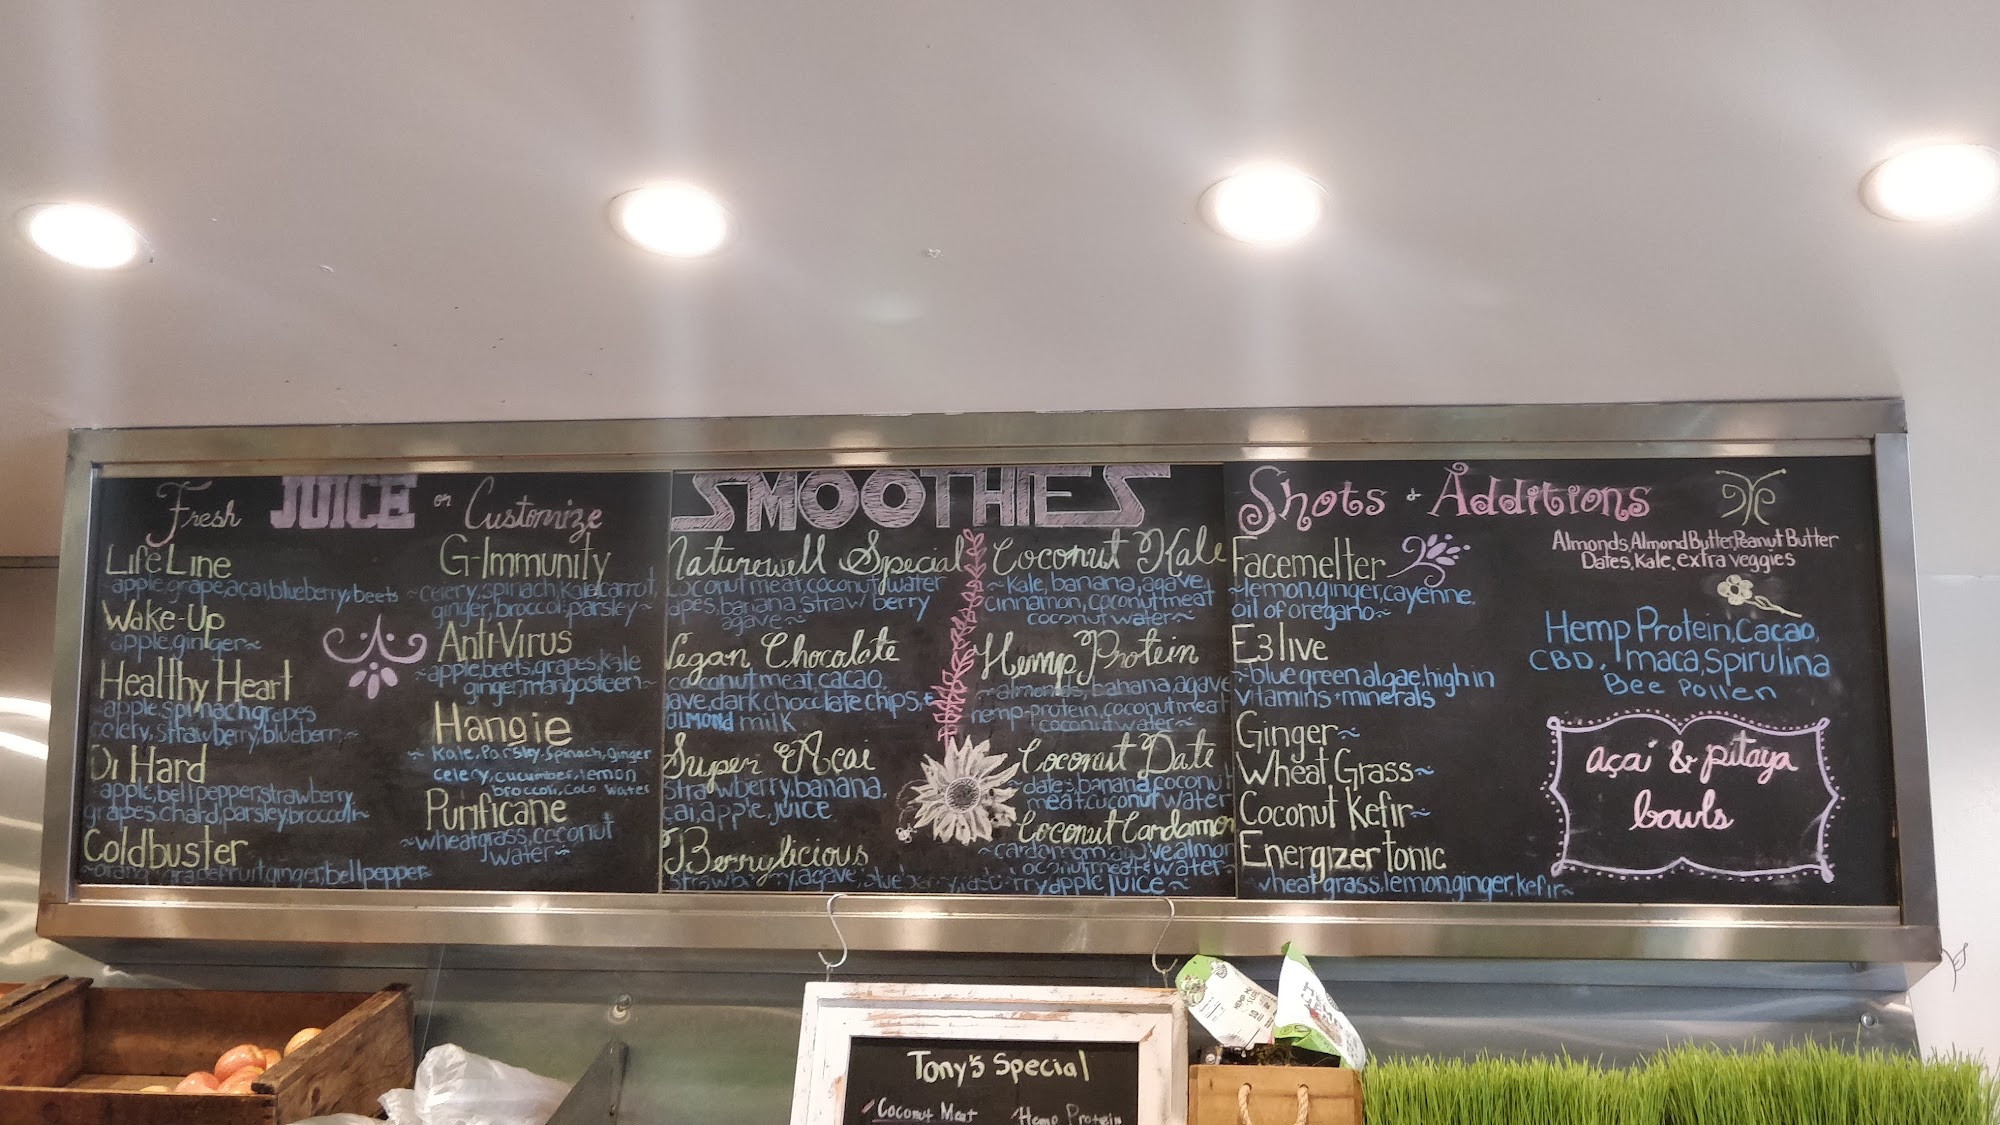 Fresh JUICE or Customize
Life Line
~apple, grape, açai, blueberry, beets
Wake-Up
apple, ginger~
Healthy Heart
~apple, spinach, grapes
celery, strawberry, blueberry~
Di Hard
~apple, bell pepper, strawberry,
grapes, chard, parsley, broccoli~
Coldbuster
~orange, grapefruit, ginger, bell pepper~
G-Immunity
~celery, spinach, kale, carrot,
ginger, broccoli, parsley~
Anti-Virus
~apple, beets, grapes, kale
ginger, mangosteen~
Hangie
~ Kale, Parsley, Spinach, Ginger
celery, cucumber, lemon
broccoli, coco water
Purificane
~wheatgrass, coconut
water~
SMOOTHIES
Naturewell Special
coconut meat, coconut water
apes, banana, strawberry
agave~
Vegan Chocolate
coconut meat, cacao,
ave, dark chocolate chips, +
almond milk
Super Açai
strawberry, banana,
çai, apple, juice
Berrylicious
strawberry, agave, blueberry, rasberry, apple juice~
Coconut Kale
~Kale, banana, agave,
cinnamon, coconut meat
coconut water~
Hemp Protein
~almonds, banana, agave
hemp-protein, coconut meat
coconut water~
Coconut Date
~dates, banana, coconut
meat, cuconut water
Coconut Cardamon
~cardamom, agave, almon
coconut meat + water~
Shots + Additions
Facemelter
~lemon, ginger, cayenne,
oil of oregano~
E3live
~blue green algae, high in
vitamins + minerals
Ginger~
Wheat Grass~
Coconut Kefir~
Energizer tonic
~wheat grass, lemon, ginger, kefir~
Almonds, Almond Butter, Peanut Butter
Dates, Kale, extra veggies
Hemp Protein, Cacao,
CBD, maca, Spirulina
Bee Pollen
açaí & pitaya
bowls
Tony's Special
Coconut Meat
Hemp Protein